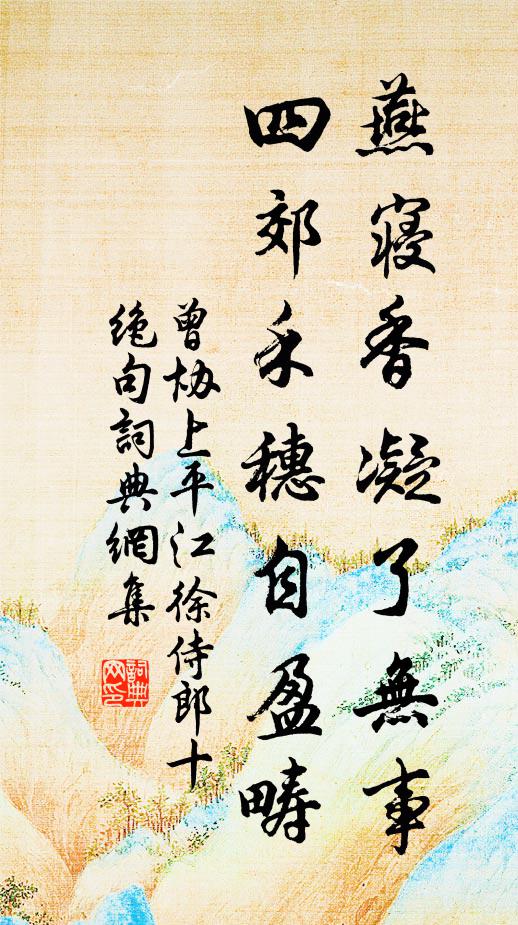 燕寢香凝了無事
四郊禾穗自盈疇
曾協上平江徐侍郎十
絕句詞典網集
詞典
网印